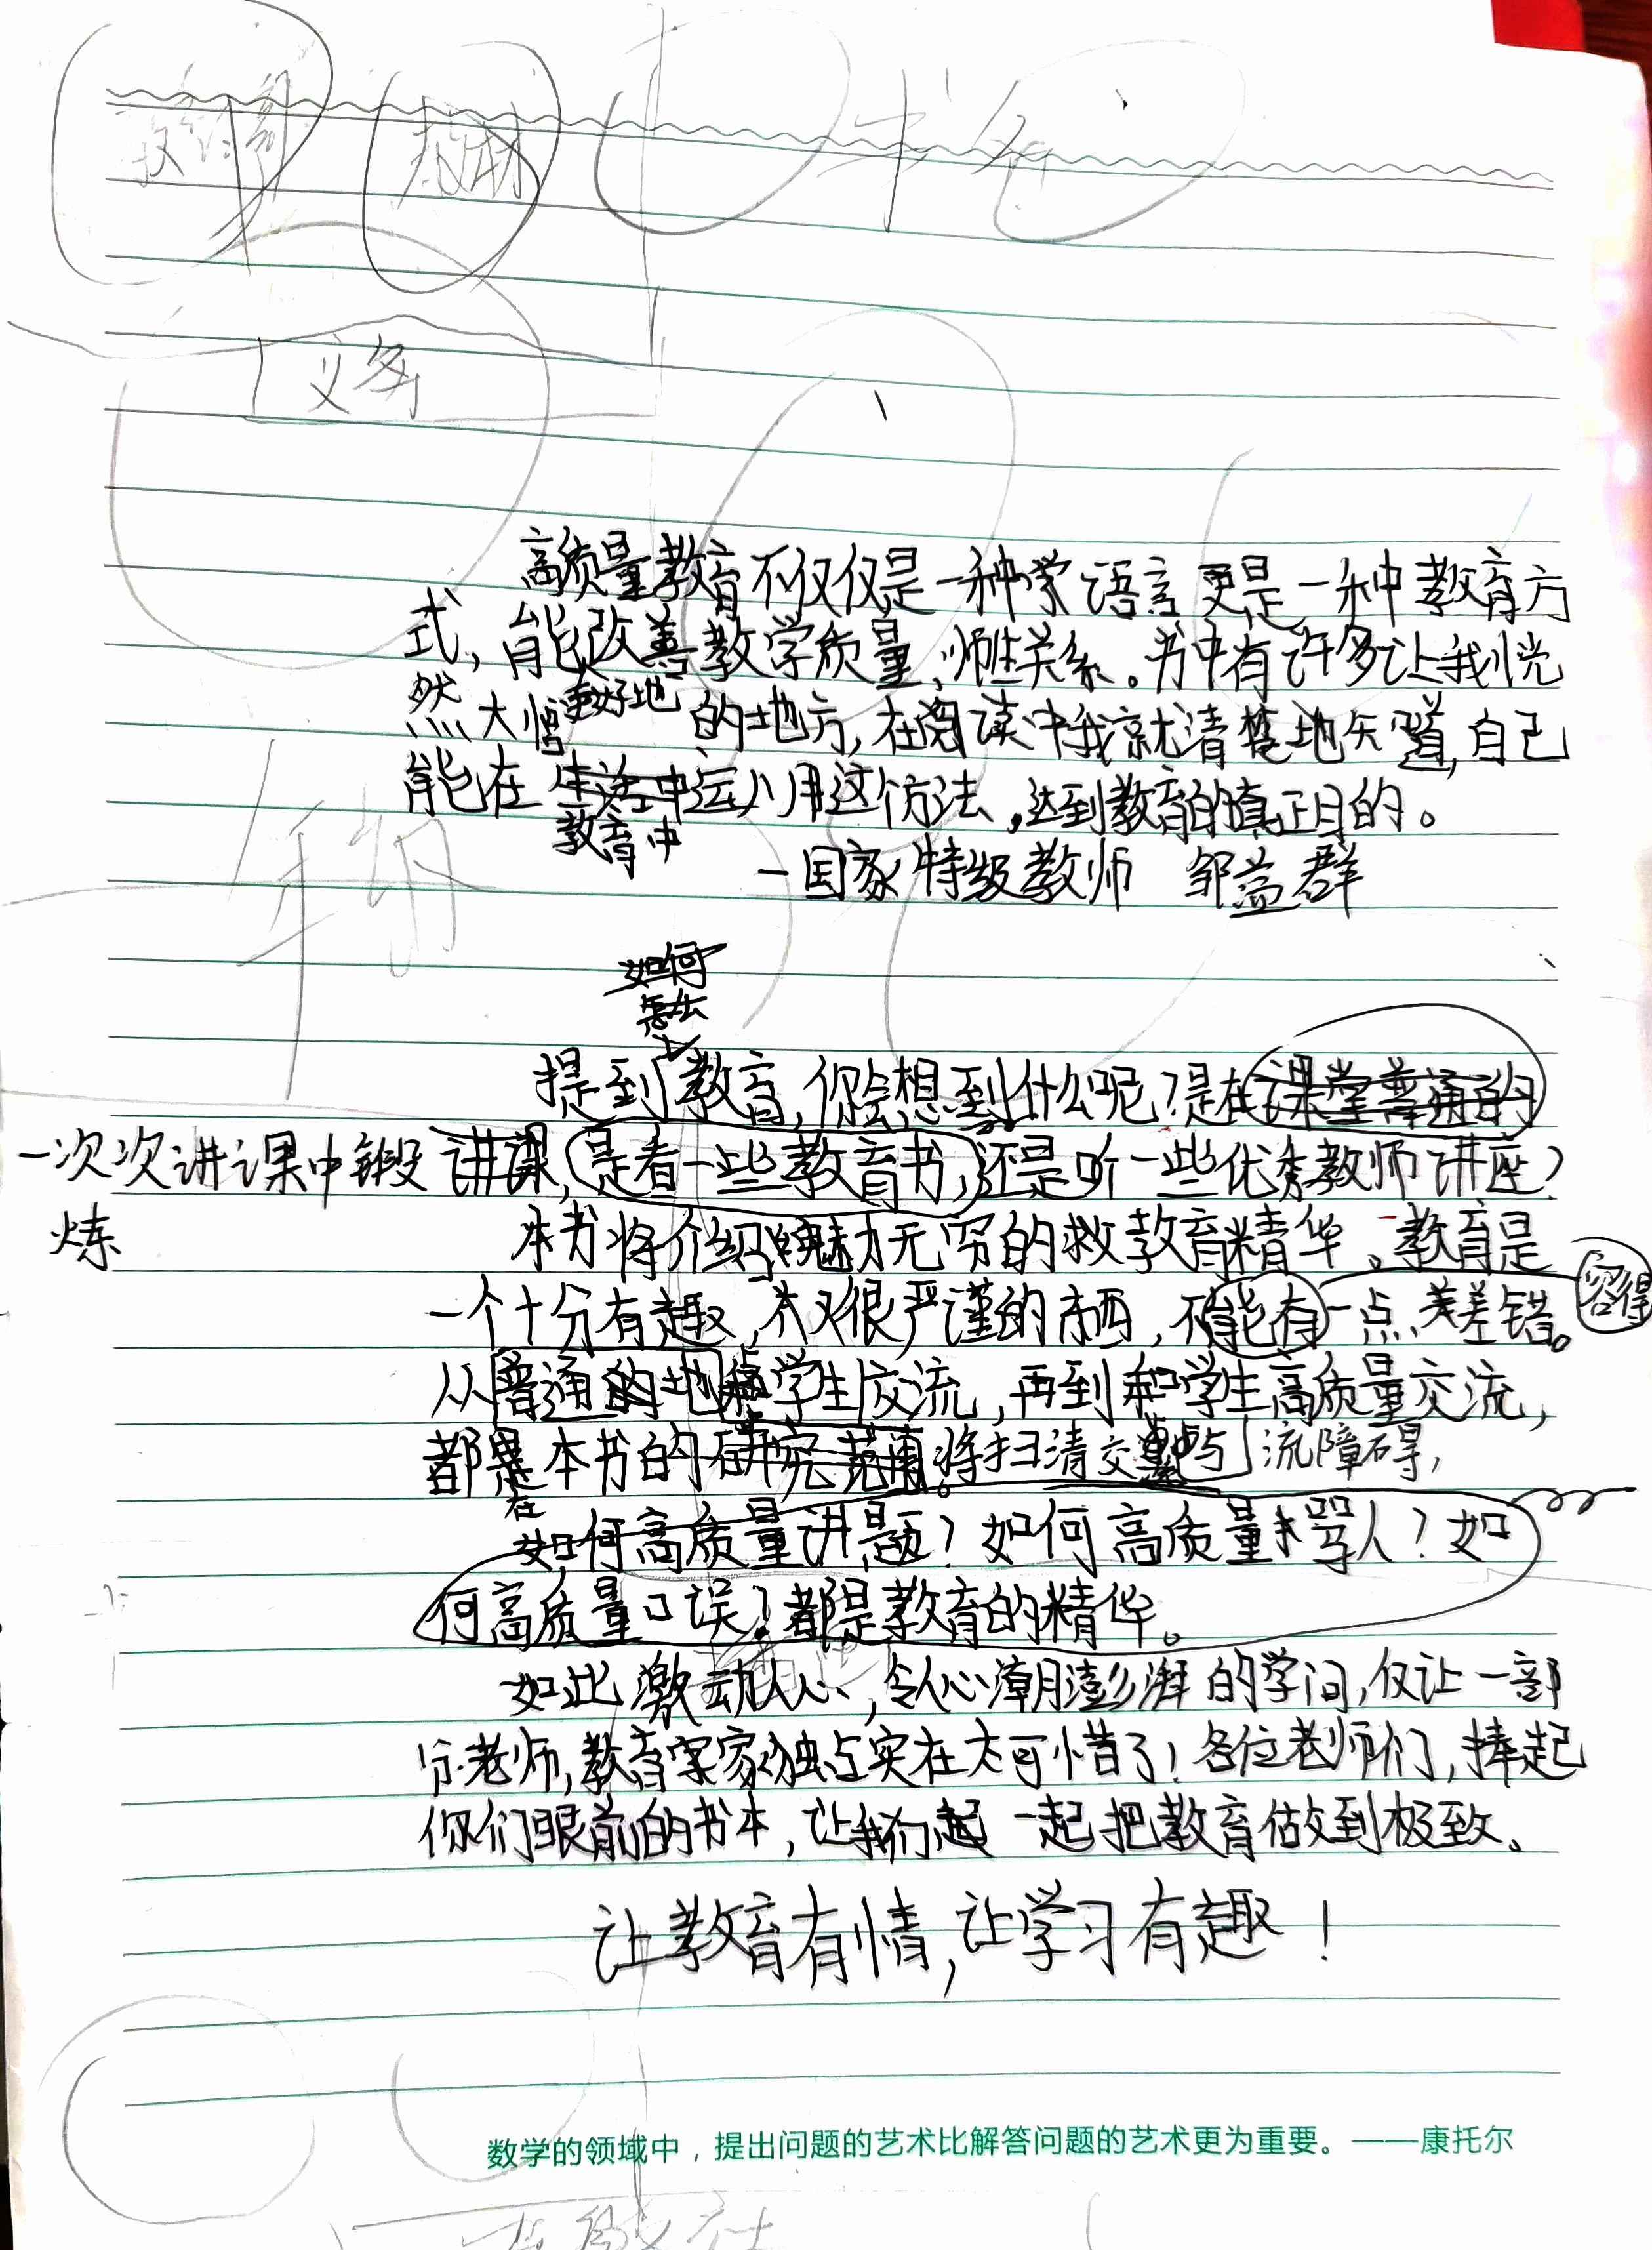 教材
义务
高质量教育不仅仅是一种学语言更是一种教育方
式,能改善教学质量,师生关系。书中有许多让我恍
然大悟的地方,在阅读中我就清楚地知道,自己
更好地
能在生活中运用这个方法,达到教育的真正目的。
教育中
一国家特级教师 邹益群
如何
怎么
提到教育,你会想到什么呢?是在课堂普通的
一次次讲课中锻 讲课,是看一些教育书,还是听一些优秀教师讲座?
炼
本书将介绍魅力无穷的教育精华。教育是
容得
一个十分有趣,又很严谨的东西,不能有一点差错。
从普通的地和学生交流,再到和学生高质量交流,
都是本书的研究范围。将扫清交流障碍,
在
如何高质量讲题?如何高质量骂人?如
何高质量口误?都是教育的精华。
如此激动人心,令人心潮澎湃的学问,仅让一部
分老师,教育家独占实在太可惜了!各位老师们,捧起
你们眼前的书本,让我们起一起把教育做到极致。
让教育有情,让学习有趣!
数学的领域中,提出问题的艺术比解答问题的艺术更为重要。——康托尔